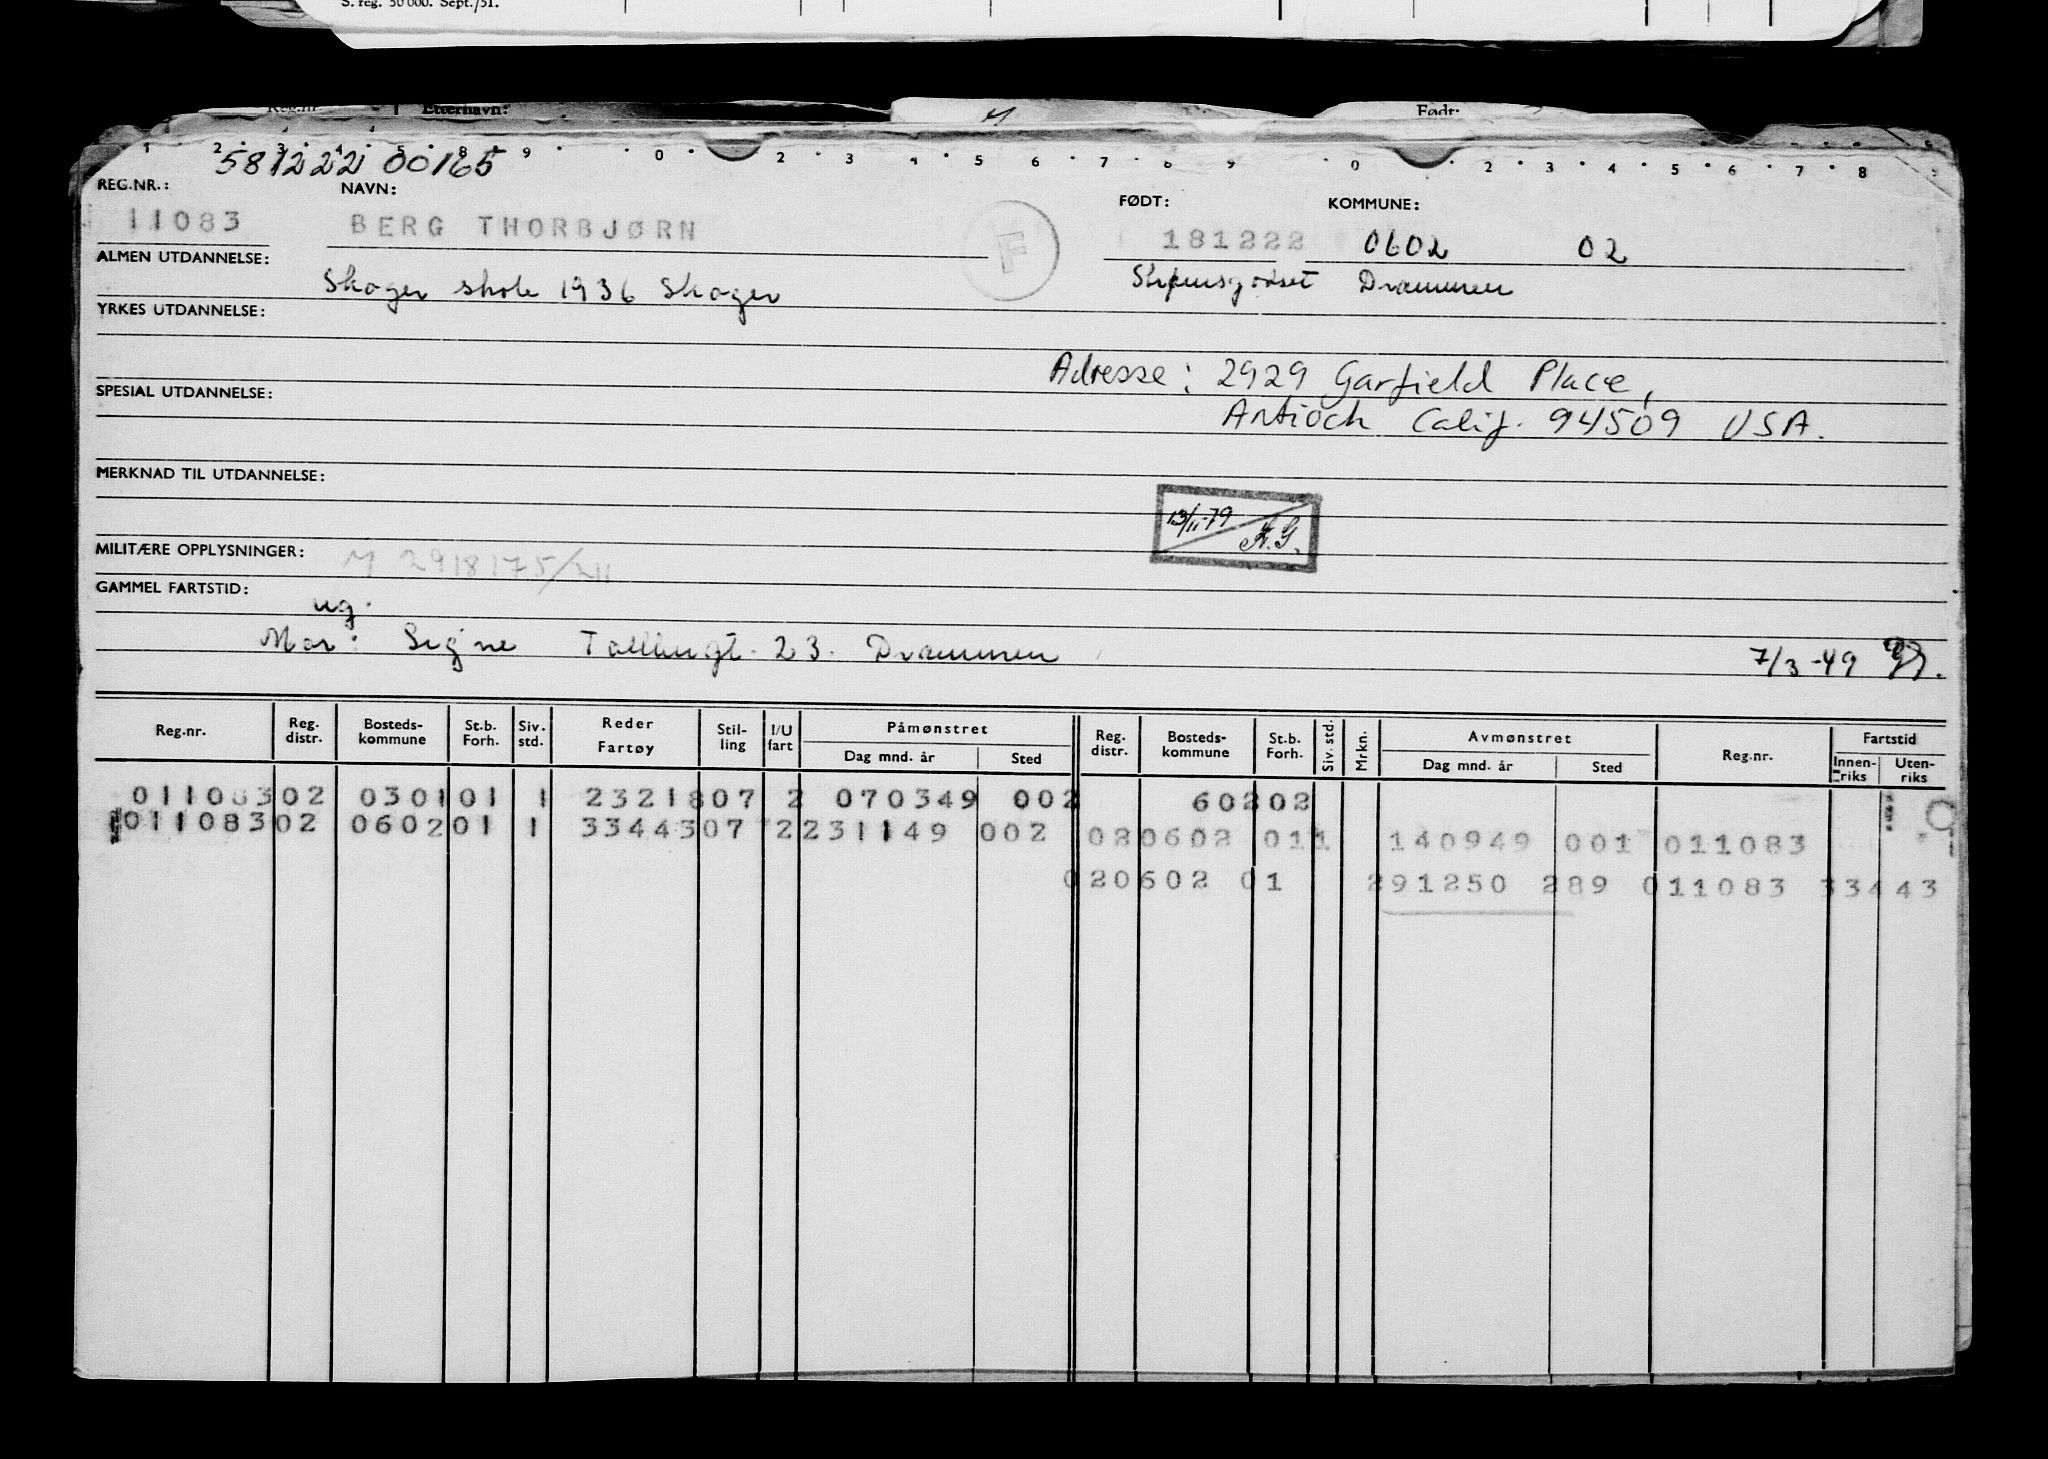 S. reg. 50 000. Sept./51.
Reg.nr. Etternavn: Født:
1 2 3 4 5 8 9 0 2 3 4 5 6 7 8 9 0 2 3 4 5 6 7 8 9
581222 00165
REG.NR.: NAVN: FØDT: KOMMUNE:
11083 BERG THORBJØRN F 181222 0602 02
ALMEN UTDANNELSE: Skoger skole 1936 Skoger Drammen
YRKES UTDANNELSE:
Adresse: 2929 Garfield Place,
SPESIAL UTDANNELSE:
Antioch Calif. 94509 USA.
MERKNAD TIL UTDANNELSE:
13/11-79 A.G.
MILITÆRE OPPLYSNINGER: M 2918175/211
GAMMEL FARTSTID:
ug.
Mor: Signe 23. Drammen 7/3-49
Reg.nr. Reg. distr. Bosteds- kommune St.b. Forh. Siv. std. Reder Fartøy Stil- ling I/U fart Påmønstret Dag mnd. år Sted Reg. distr. Bosteds- kommune St.b. Forh. Siv. std. Mrkn. Avmønstret Dag mnd. år Sted Reg.nr. Fartstid Innen- riks Uten- riks
011083 02 0301 01 1 23218 07 2 070349 002 602 02
011083 02 0602 01 1 33443 07 2 231149 002 02 0602 01 1 140949 001 011083
02 0602 01 291250 289 011083 33443